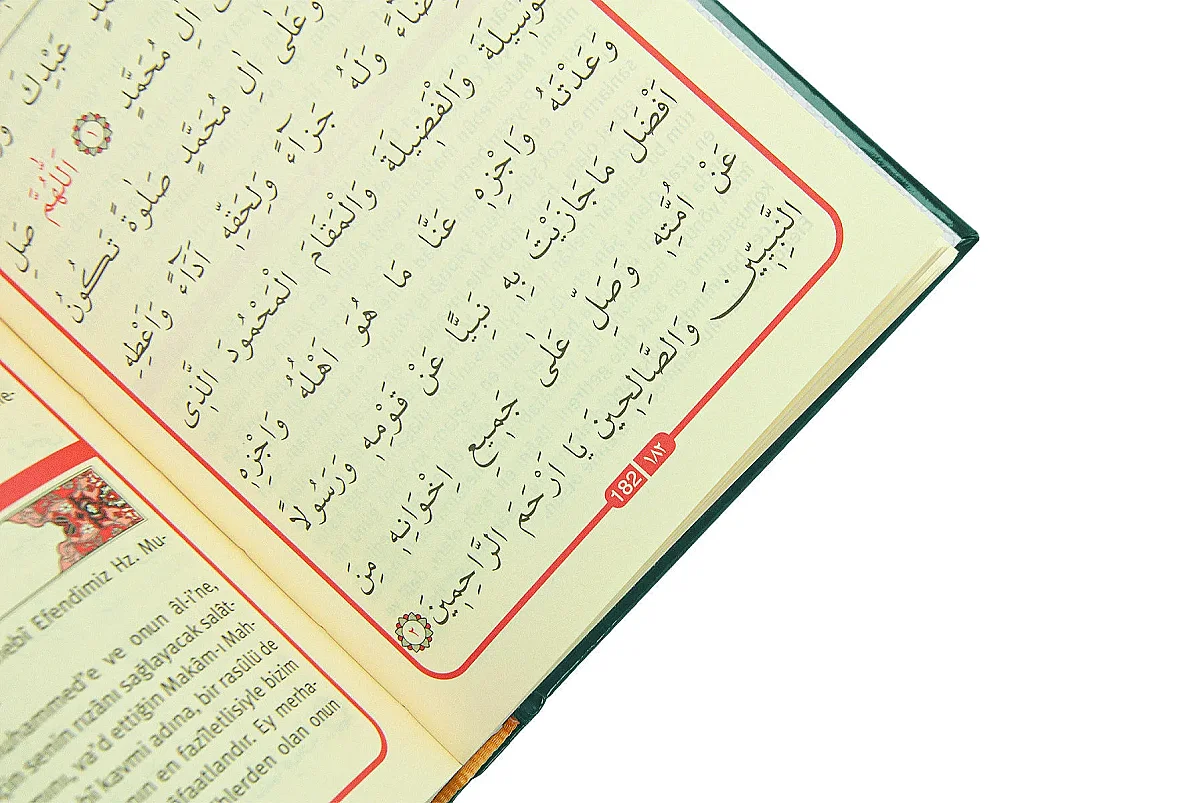 عَبْدِكَ
اٰلِ مُحَمَّدٍ ﴿١﴾ اَللّٰهُمَّ صَلِّ
وَعَلٰى اٰلِ مُحَمَّدٍ صَلٰوةً تَكُونُ
وَلَهُ جَزَآءً وَلِحَقِّهِ اَدَآءً وَاَعْطِهِ
الْوَسِيلَةَ وَالْفَضِيلَةَ وَالْمَقَامَ الْمَحْمُودَ الَّذِى
وَعَدْتَهُ وَاجْزِهِ عَنَّا مَا هُوَ اَهْلُهُ وَاجْزِهِ
اَفْضَلَ مَاجَازَيْتَ بِهِ نَبِيًّا عَنْ قَوْمِهِ وَرَسُولًا
عَنْ اُمَّتِهِ وَصَلِّ عَلٰى جَمِيعِ اِخْوَانِهِ مِنَ
النَّبِيِّينَ وَالصَّالِحِينَ يَا اَرْحَمَ الرَّاحِمِينَ ﴿٢﴾
182 ١٨٢
Efendimiz Hz. Mu-
uhammed'e ve onun âl-i'ne,
için senin rızânı sağlayacak salât-
va'd ettiğin Makâm-ı Mah-
kavmi adına, bir rasûlü de
en fazîletlisiyle bizim
âfaatlandır. Ey merha-
hlerden olan onun